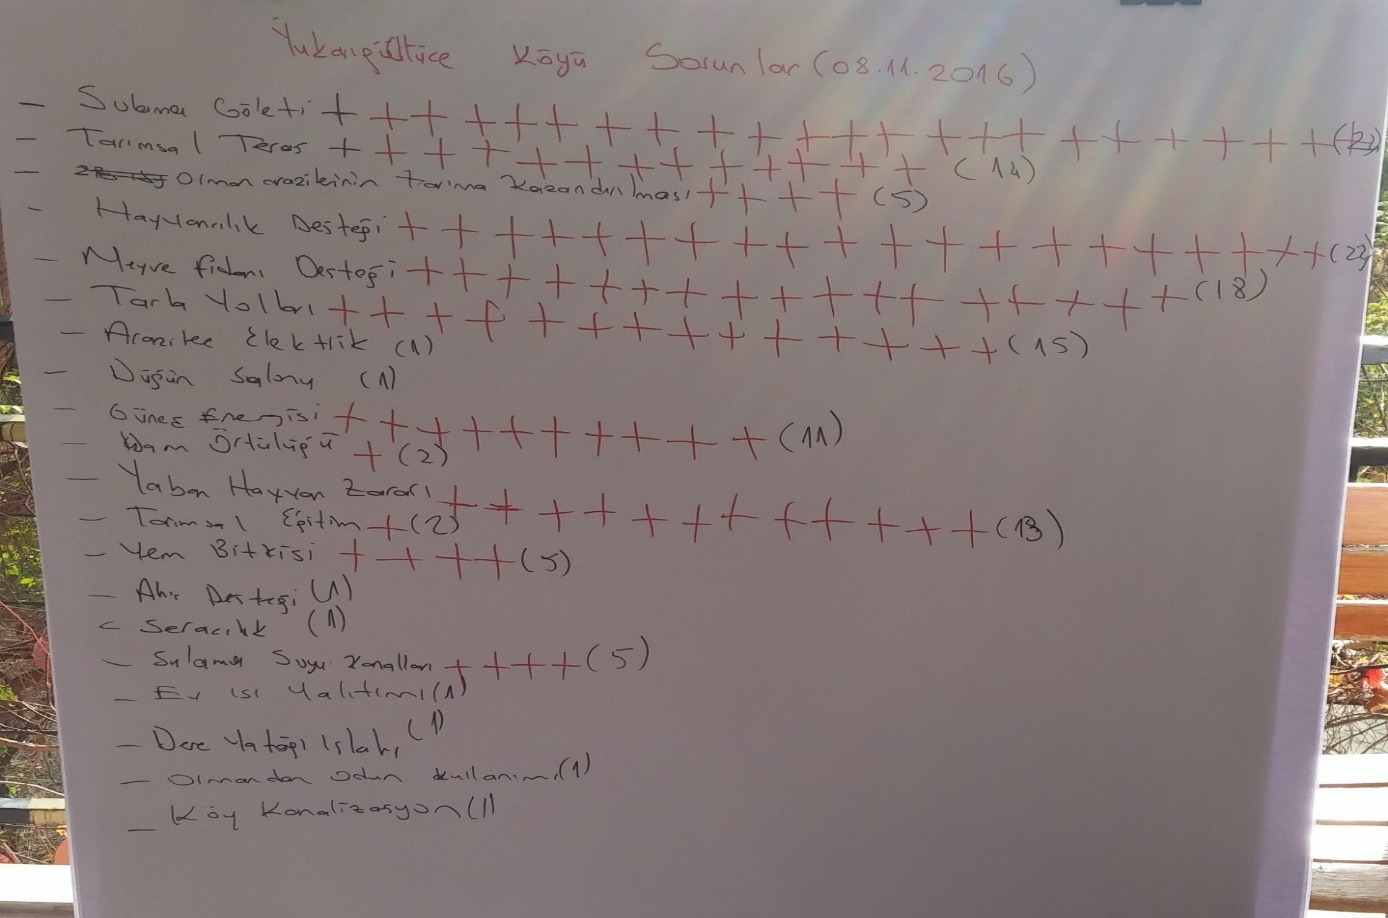 Yukarıgüllüce Köyü Sorunlar (08.11.2016)
- Sulama Göleti + + + + + + + + + + + + + + + + + + + + + +
- Tarımsal Teras + + + + + + + + + + + + + (14)
- Orman arazilerinin tarıma kazandırılması + + + + (5)
- Hayvancılık Desteği + + + + + + + + + + + + + + + + + + + + (22)
- Meyve fidanı Desteği + + + + + + + + + + + + + + + + + (18)
- Tarla Yolları + + + + + + + + + + + + + + (15)
- Araziler Elektrik (1)
- Düğün Salonu (1)
- Güneş Enerjisi + + + + + + + + + + (11)
- Dam Örtülüğü + (2)
- Yaban Hayvan Zararı + + + + + + + + + + + + (13)
- Tarımsal Eğitim + (2)
- Yem Bitkisi + + + + (5)
- Ahır Desteği (1)
- Seracılık (1)
- Sulama Suyu Kanalları + + + + (5)
- Ev ısı Yalıtımı (1)
- Dere Yatağı Islahı (1)
- Ormandan Odun kullanımı (1)
- Köy Kanalizasyon (1)